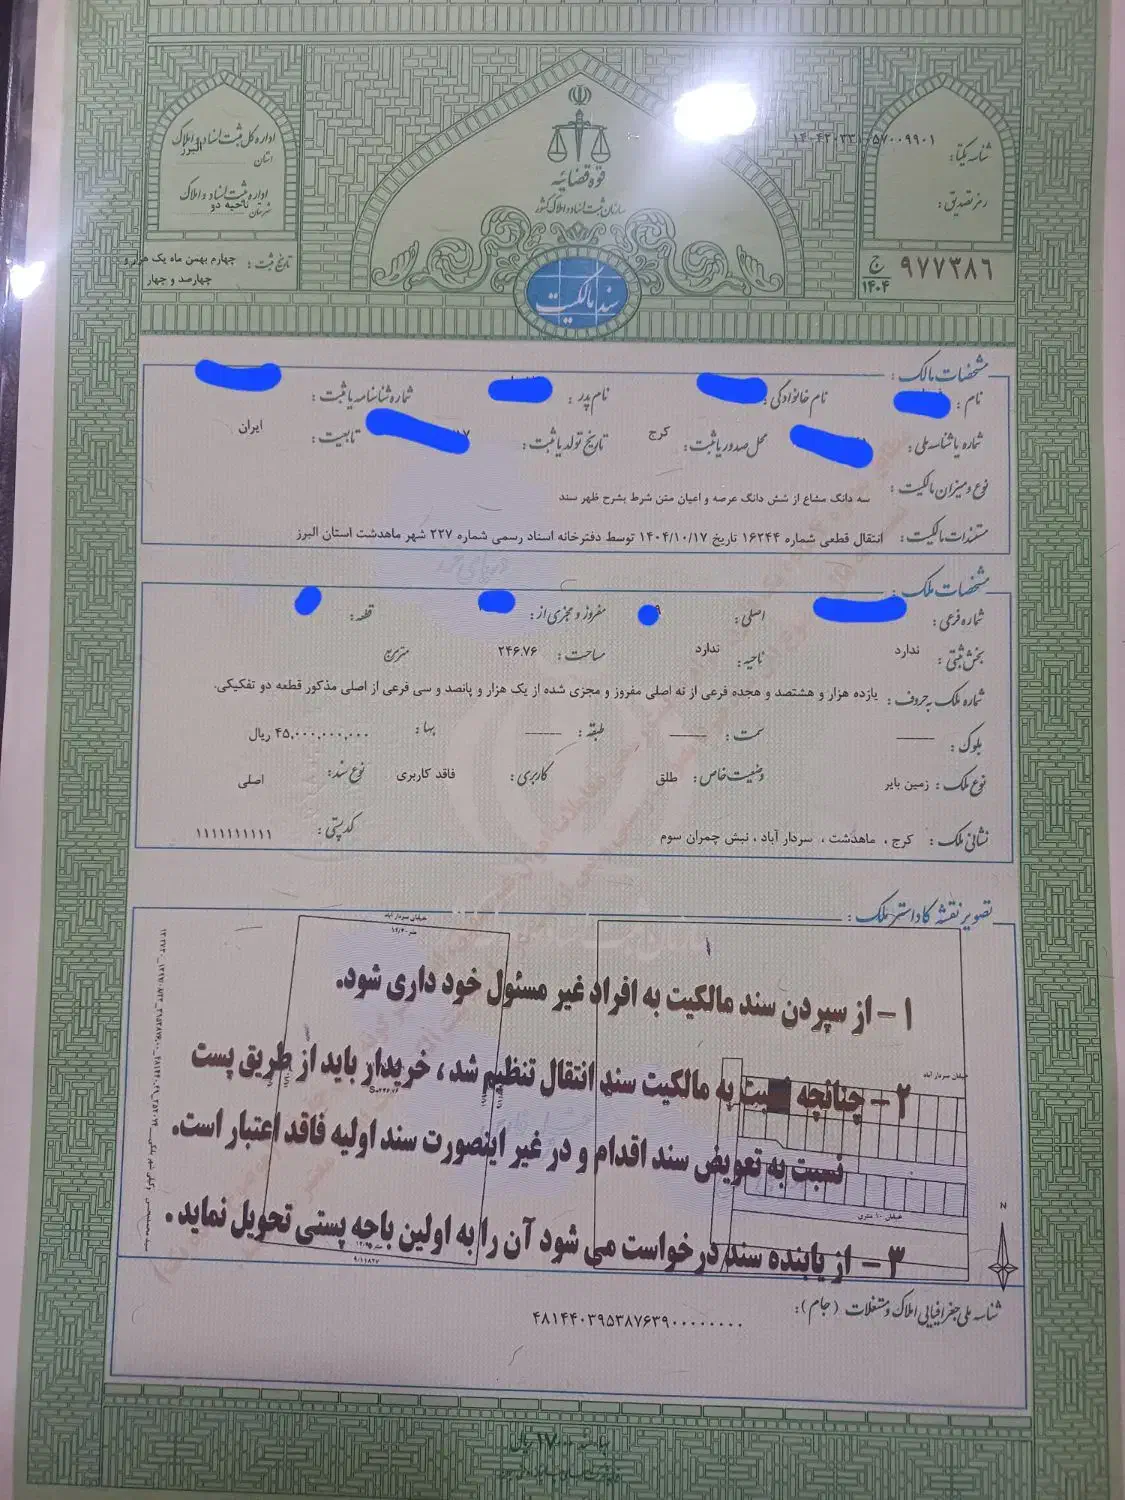 قوه قضائیه
سازمان ثبت اسناد و املاک کشور
سند مالکیت
شناسه یکتا: ۱۴۰۴۳۰۳۳۱۰۵۷۰۰۹۹۰۱
رمز تصدیق:
۹۷۷۳۸۶ ج ۱۴۰۴
اداره کل ثبت اسناد و املاک
استان البرز
اداره ثبت اسناد و املاک
شهرستان ناحیه دو
تاریخ ثبت: چهارم بهمن ماه یک هزار و
چهارصد و چهار
مشخصات مالک:
نام: نام خانوادگی: نام پدر: شماره شناسنامه یا ثبت:
شماره یا شناسه ملی: محل صدور یا ثبت: کرج تاریخ تولد یا ثبت: تابعیت: ایران
نوع و میزان مالکیت: سه دانگ مشاع از شش دانگ عرصه و اعیان متن شرط بشرح ظهر سند
مستندات مالکیت: انتقال قطعی شماره ۱۶۲۴۴ تاریخ ۱۴۰۴/۱۰/۱۷ توسط دفترخانه اسناد رسمی شماره ۲۲۷ شهر ماهدشت استان البرز
مشخصات ملک:
شماره فرعی: اصلی: مفروز و مجزی از: قطعه:
بخش ثبتی: ندارد ناحیه: ندارد مساحت: ۲۴۶.۷۶ مترمربع
شماره ملک به حروف: یازده هزار و هشتصد و هجده فرعی از نه اصلی مفروز و مجزی شده از یک هزار و پانصد و سی فرعی از اصلی مذکور قطعه دو تفکیکی.
بلوک: سمت: طبقه: بها: ۴۵,۰۰۰,۰۰۰,۰۰۰ ریال
نوع ملک: زمین بایر وضعیت خاص: طلق کاربری: فاقد کاربری نوع سند: اصلی
نشانی ملک: کرج ، ماهدشت ، سردار آباد ، نبش چمران سوم کدپستی: ۱۱۱۱۱۱۱۱۱۱
تصویر نقشه کاداستر ملک:
خیابان سردار آباد
۱ – از سپردن سند مالکیت به افراد غیر مسئول خود داری شود.
خیابان سردار آباد
۲ – چنانچه نسبت به مالکیت سند انتقال تنظیم شد ، خریدار باید از طریق پست
نسبت به تعویض سند اقدام و در غیر اینصورت سند اولیه فاقد اعتبار است.
خیابان ۱۰ متری
N
۳ – از یابنده سند درخواست می شود آن را به اولین باجه پستی تحویل نماید .
شناسه ملی جغرافیایی املاک و مستغلات (جام): ۴۸۱۴۴۰۳۹۵۳۸۷۶۳۹۰۰۰۰۰۰۰۰۰